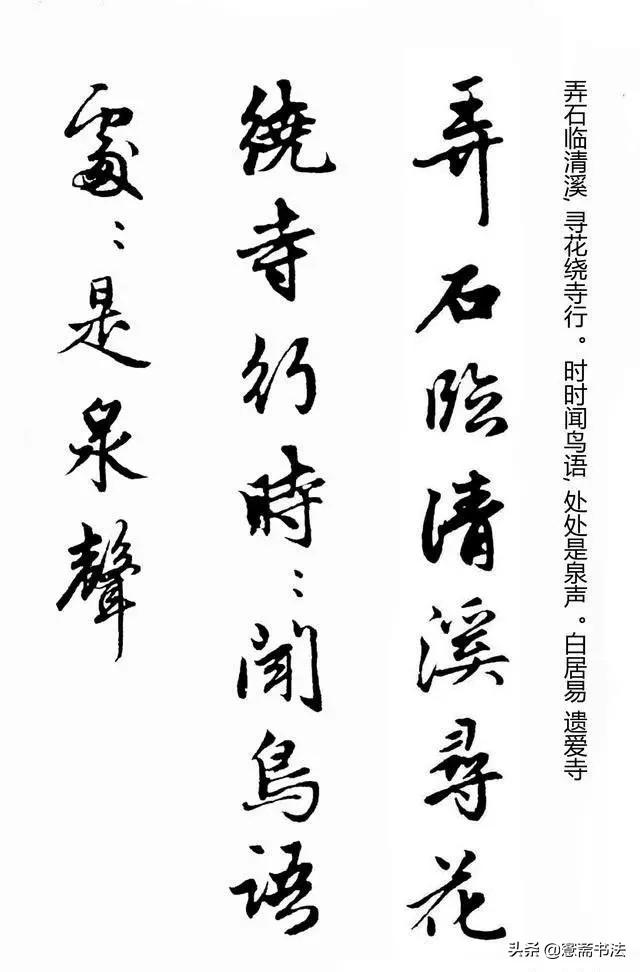 弄石临清溪,寻花绕寺行。时时闻鸟语,处处是泉声。白居易 遗爱寺
弄石臨清溪尋花
繞寺行時：聞鳥語
處：是泉聲
头条@寋斋书法